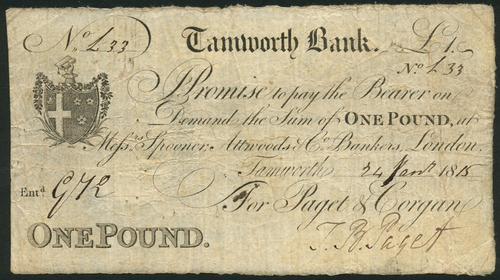 No. L 33 Tamworth Bank. £1.
No. L 33
I Promise to pay the Bearer on
Demand the Sum of ONE POUND, at
Messrs. Spooner, Attwoods & Co. Bankers, London.
Tamworth 24 1815
Entd.
For Paget & Corgan
T. B. Paget
ONE POUND.